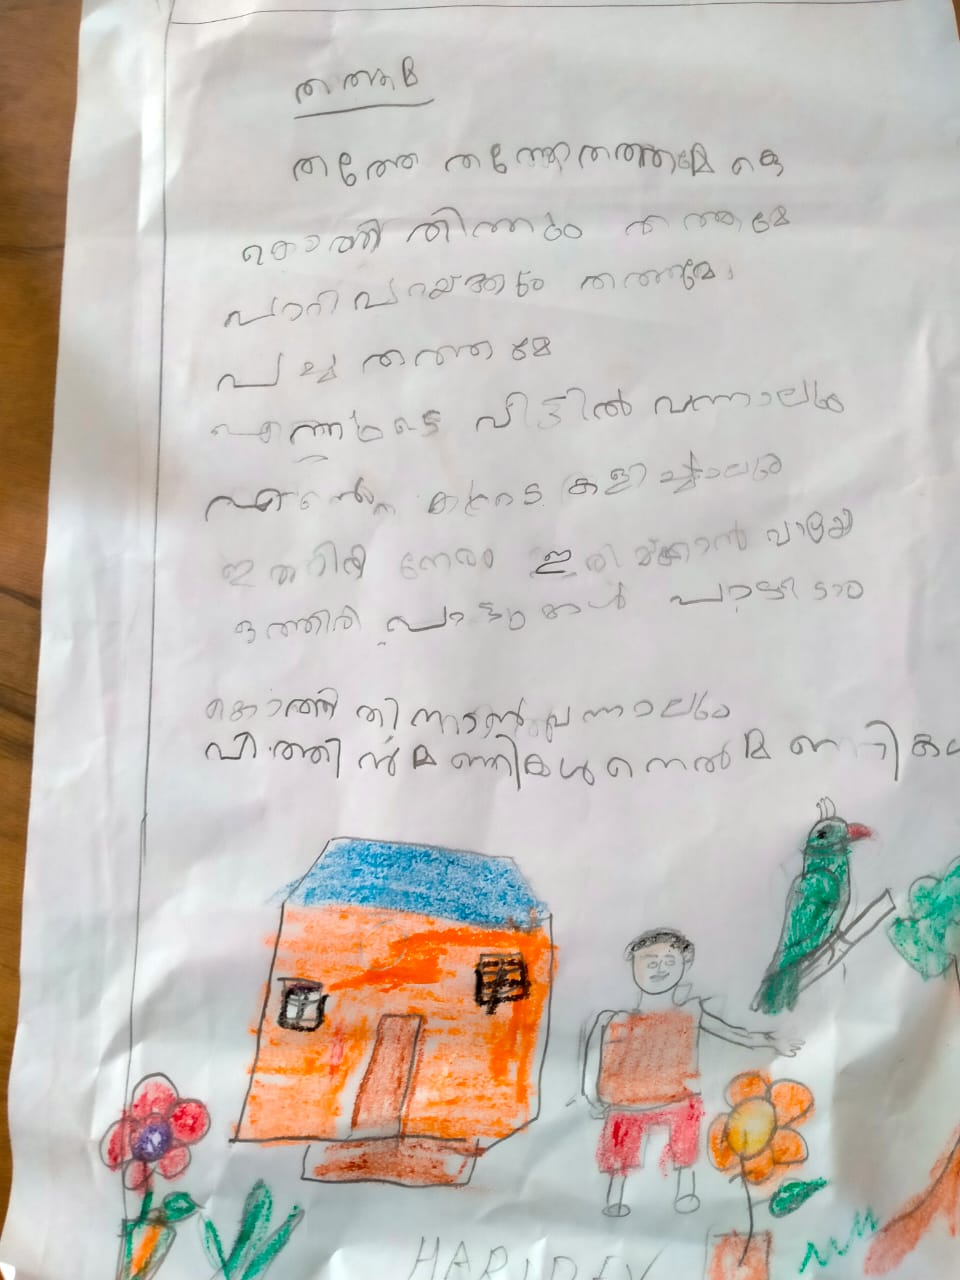 തത്തമ്മ
തത്തേ തത്തേ തത്തമ്മേ
കൊത്തി തിന്നും തത്തമ്മേ
പാറി പറയ്ക്കും തത്തമ്മേ
പച്ച തത്തമ്മേ
എന്നുടെ വീട്ടിൽ വന്നാലും
എന്റെ കൂടെ കളിച്ചാലും
ഇത്തിരി നേരം ഇരിയ്ക്കാൻ
ഒത്തിരി പാട്ടുകൾ പാടീടാം
കൊത്തി തിന്നാൻ വന്നാലും
വിത്തിൻ മണികൾ നെൽ മണികൾ
HARIDEV